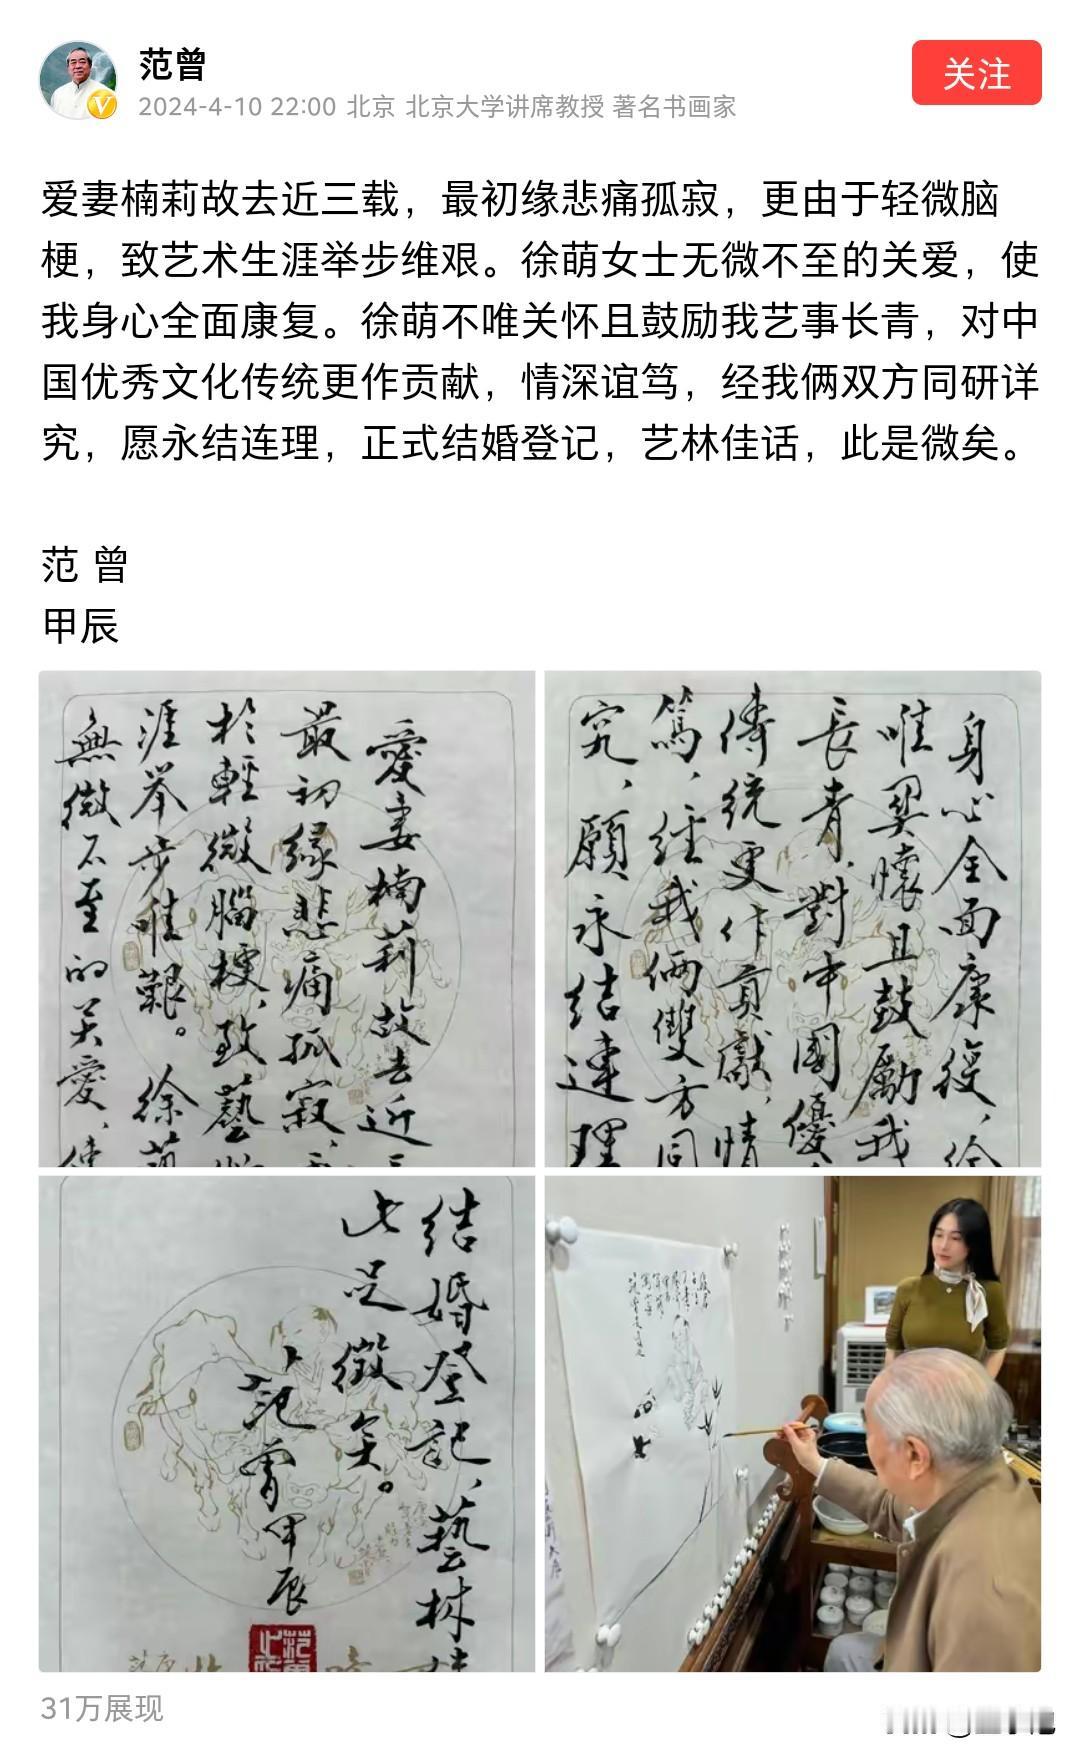 范曾
关注
2024-4-10 22:00 北京 北京大学讲席教授 著名书画家
爱妻楠莉故去近三载，最初缘悲痛孤寂，更由于轻微脑
梗，致艺术生涯举步维艰。徐萌女士无微不至的关爱，使
我身心全面康复。徐萌不唯关怀且鼓励我艺事长青，对中
国优秀文化传统更作贡献，情深谊笃，经我俩双方同研详
究，愿永结连理，正式结婚登记，艺林佳话，此是微矣。
范 曾
甲辰
愛妻楠莉故去近三
最初缘悲痛孤寂，
於輕微腦梗，致藝
涯举步唯艱。徐萌
無微不至的关愛，使
身心全面康復，徐
唯関懷且鼓勵我
長青，對中國優
傳统更作貢獻，情
篤，经我俩雙方同
究，願永结連理
结婚登記，藝林佳
此足徵矣。
范曾甲辰
31万展现